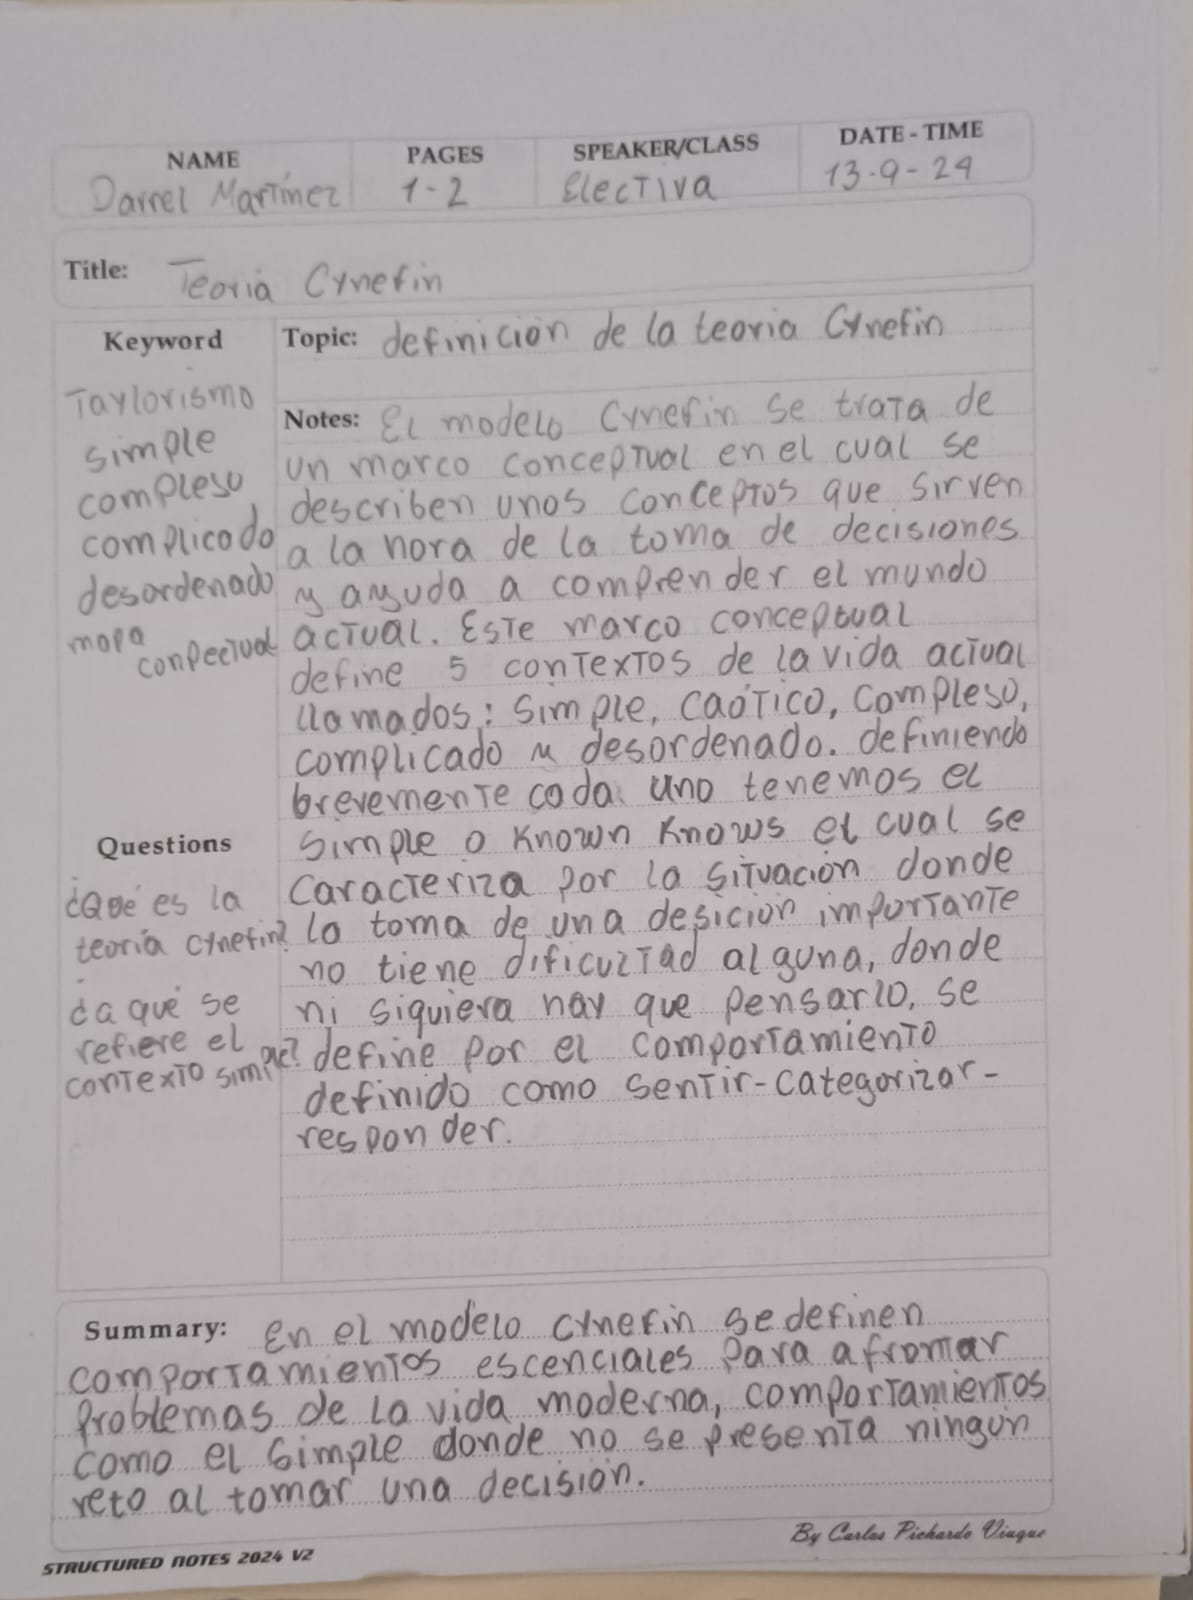 NAME PAGES SPEAKER/CLASS DATE - TIME
Darrel Martínez 1-2 Electiva 13-9-24
Title: Teoría Cynefin
Keyword
Taylorismo
simple
compleso
complicado
desordenado
mapa
conpectual
Questions
¿Qué es la
teoría cynefin?
¿a qué se
refiere el
contexto simple?
Topic: definición de la teoria Cynefin
Notes: El modelo Cynefin se trata de
un marco conceptual en el cual se
describen unos conceptos que sirven
a la hora de la toma de decisiones
y ayuda a comprender el mundo
actual. Este marco conceptual
define 5 contextos de la vida actual
llamados: simple, caótico, compleso,
complicado y desordenado. definiendo
brevemente cada uno tenemos el
simple o Known Knows el cual se
caracteriza por la situación donde
la toma de una desición importante
no tiene dificultad alguna, donde
ni siquiera hay que pensarlo, se
define por el comportamiento
definido como sentir-categorizar-
responder.
Summary: En el modelo cynefin se definen
comportamientos escenciales para afrontar
problemas de la vida moderna, comportamientos
como el simple donde no se presenta ningún
reto al tomar una decisión.
By Carlos Pichardo Viuque
STRUCTURED NOTES 2024 V2